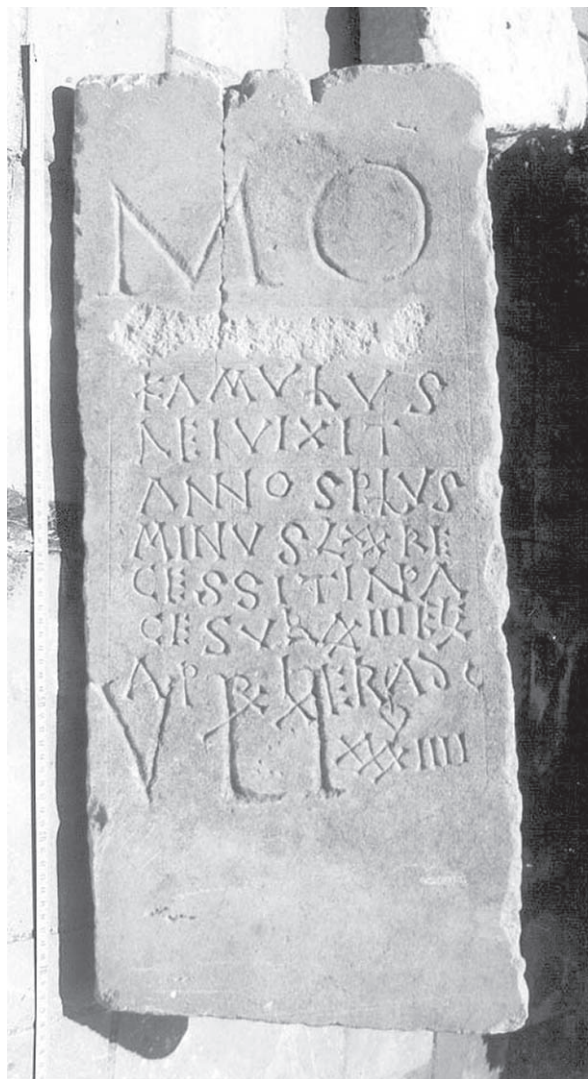 MO
FAMVLVS
DEI VIXIT
ANNOS PLVS
MINVS LXX RE
CESSIT IN PA
CE SVB
APREL ERA DC
VLI